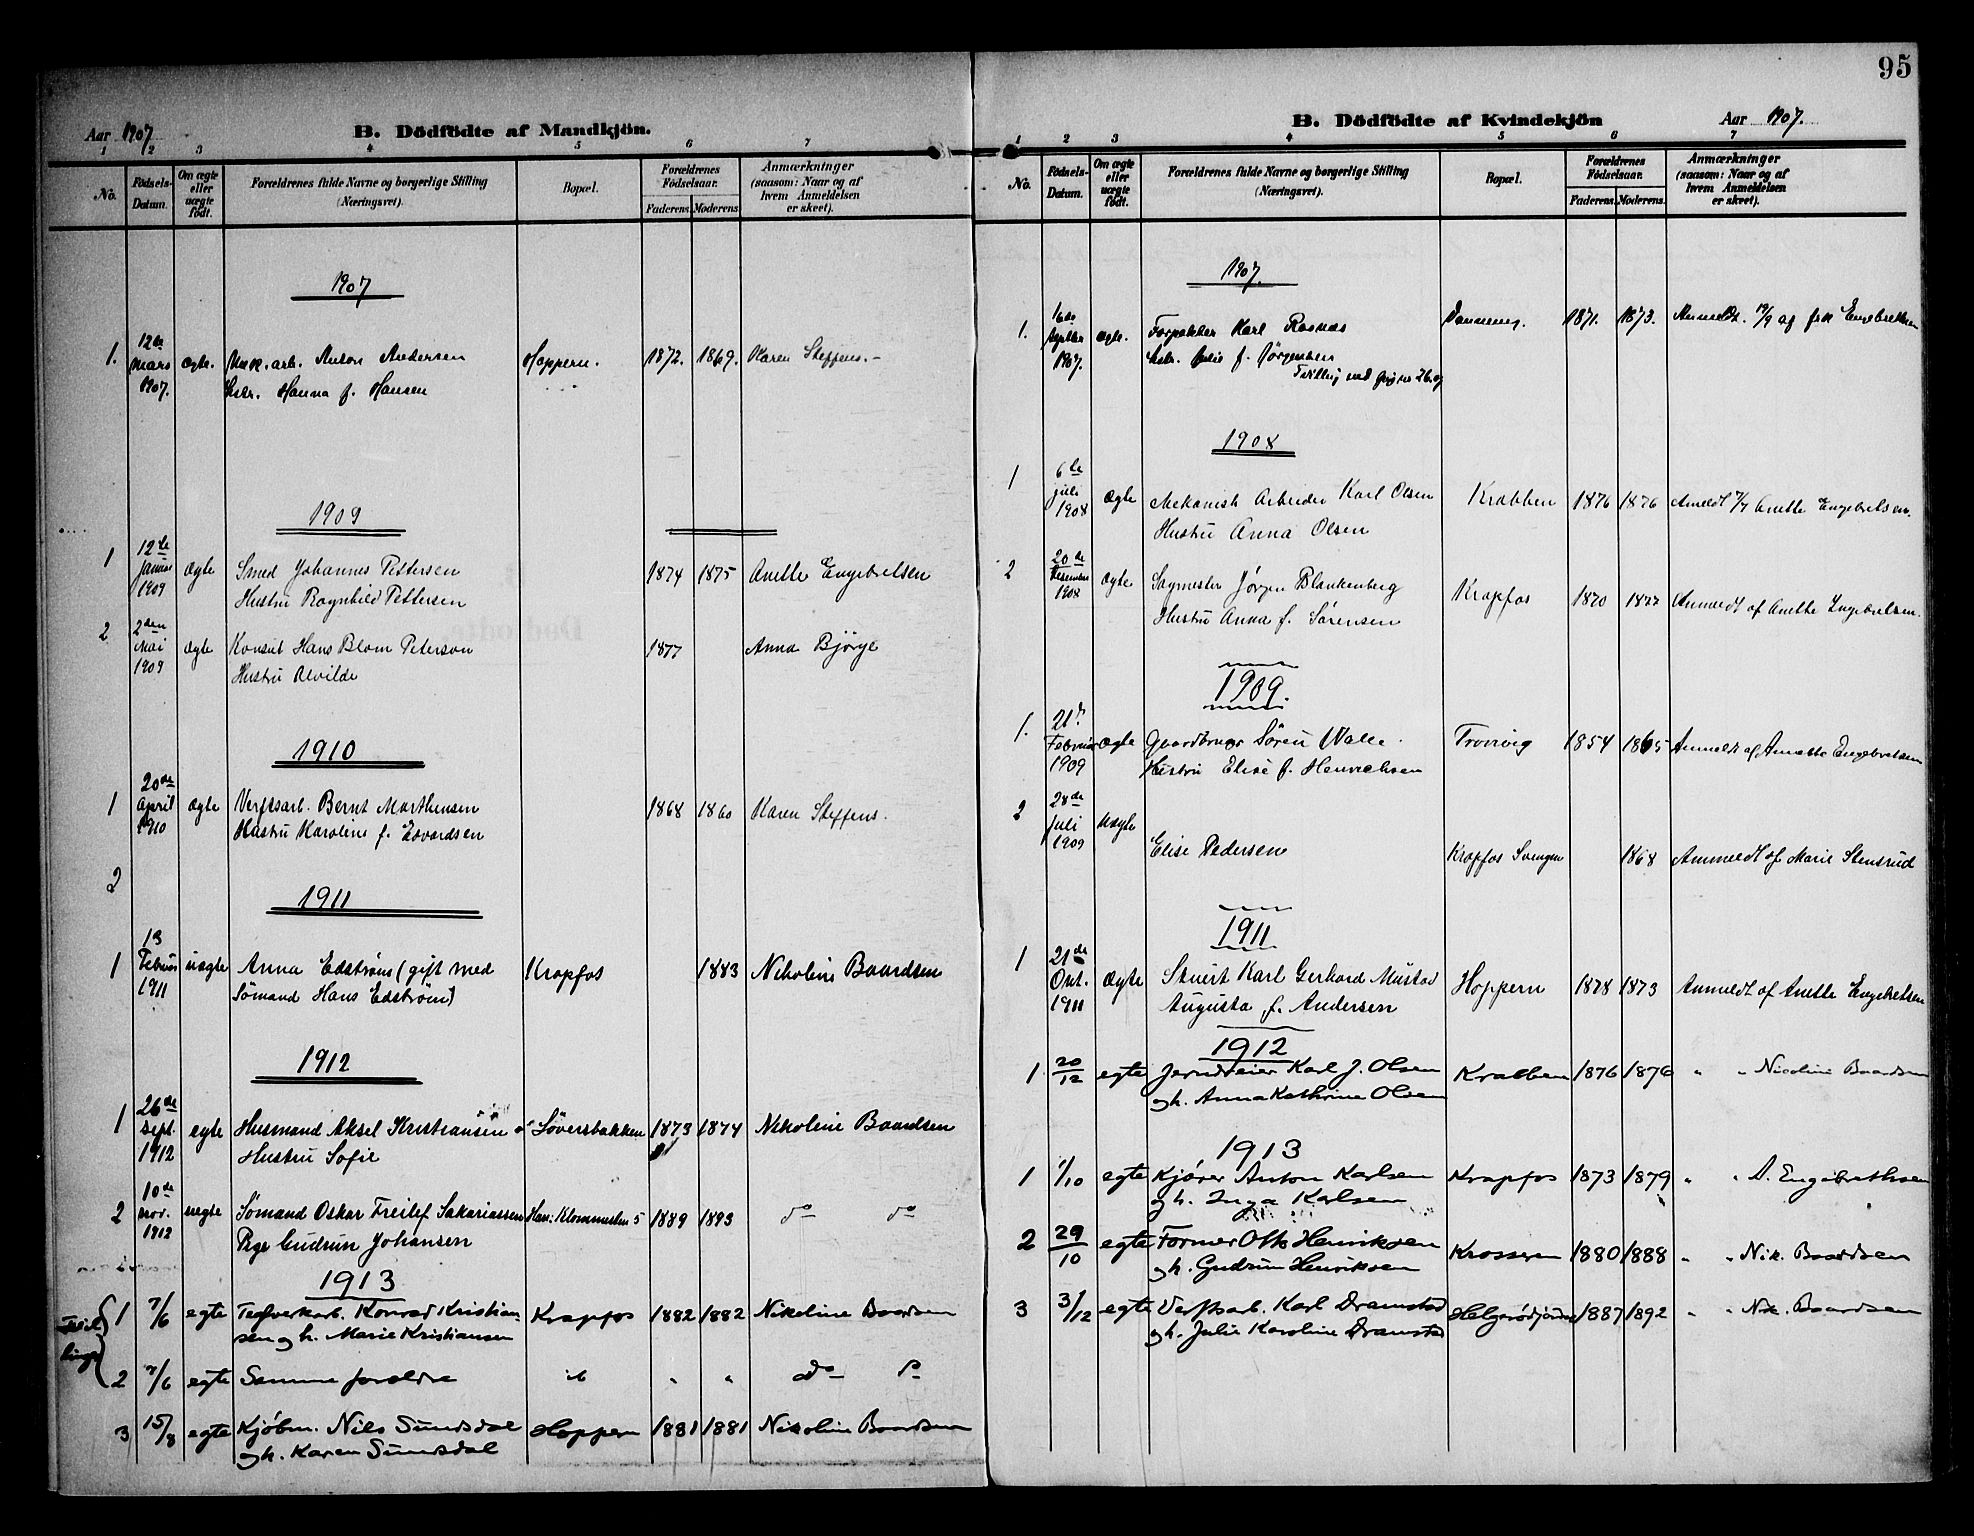 Aar 1907
B. Dödfödte af Mandkjön.
1 2 3 4 5 6 7
No.
Födsels-Datum.
Om ægte eller uægte födt.
Forældrenes fulde Navne og borgerlige Stilling (Næringsvei).
Bopæl.
Forældrenes Födselsaar.
Faderens. Moderens.
Anmærkninger (saasom: Naar og af hvem Anmeldelsen er skeet).
1907
1. 12te mars 1907. ægte. Mek. arb. Anton Andersen Hoppern. 1872. 1869. Karen Steffens.-
Hstr. Hanna f. Hansen
1909
1 12te Januar 1909 ægte Smed Johannes Pettersen 1874 1875 Anette Engebretsen
Hustru Ragnhild Pettersen
2 2den Mai 1909 ægte Konsul Hans Blom Peterson 1877 Anna Bjørge
Hustru Alvilde
1910
1 20de April 1910 ægte Verftsarb. Bernt Marthinsen 1868 1860 Karen Steffens.
Hustru Karoline f. Edvardsen
2
1911
1 13 Februar 1911 uægte Anna Edstrøm (gift med Krapfos 1883 Nikoline Baardsen
Sømand Hans Edstrøm)
1912
1 26de Sept. 1912 egte Husmand Aksel Kristiansen o Søverstakken 1873 1874 Nikoline Baardsen
Hustru Sofie
2 10de Nov. 1912 uegte Sømand Oskar Freilef Sakariassen Klommesten 5 1889 1893 do do
Pige Gudrun Johansen
1913
1 7/6 egte Teglverkarb. Konrad Kristian- Krapfos 1882 1882 Nikoline Baardsen
sen og h. Marie Kristiansen
2 7/6 egte Samme foreldre " " do do
3 15/8 egte Kjøbm. Nils Sundsdal Hoppern 1881 1881 Nikoline Baardsen
og h. Karen Sundsdal
95
B. Dödfödte af Kvindekjön
Aar 1907.
1 2 3 4 5 6 7
No.
Födsels-Datum.
Om ægte eller uægte födt.
Forældrenes fulde Navne og borgerlige Stilling (Næringsvei).
Bopæl.
Forældrenes Födselsaar.
Faderens. Moderens.
Anmærkninger (saasom: Naar og af hvem Anmeldelsen er skeet).
1907.
1. 16de 1907. ægte. Forpakter Karl Rasnæs 1871. 1873. Anmeldt 19/9 af frk Engebretsen
Hstr. f. Jørgensen
Tvilling med
1908
1 6te juli 1908 ægte Mekanisk Arbeider Karl Olsen Krabben 1876 1876 Anmeldt 7/7 Anette Engebretsen.
Hustru Anna Olsen
2 20de Desember 1908 ægte Sagmester Jörgen Blankenberg Krapfos 1870 Anmeldt af Anette Engebretsen.
Hustru Anna f. Sørensen
1909.
1. 21de Februar 1909 ægte Gaardbruger Søren Walle. 1854 1865 Anmeldt af Anette Engebretsen
Hustru Elise f. Henrichsen
2 28de juli 1909 Uægte Elise Pedersen Krapfos Svingen 1868 Anmeldt af Marie Stensrud
1911
1 21de Okt. 1911 Ægte Stuert Karl Gerhard Mustad Hoppern 1878 1873 Anmeldt af Anette Engebretsen
Augusta f. Andersen
1912
1 20/12 egte Jerndreier Karl J. Olsen Krabben 1876 1876 " " Nicoline Baardsen
og h. Anna Kathrine Olsen
1913
1 1/10 egte Kjører Anton Karlsen Krapfos 1873 1879 " " A. Engebrethsen
og h. Inga Karlsen
2 29/10 egte Former Otto Henriksen Krossern 1880 1888 " " Nik. Baardsen
og h. Gudrun Henriksen
3 3/12 egte Verftsarb. Karl Dramstad 1887 1892 " " Nik. Baardsen
og h. Julie Karoline Dramstad